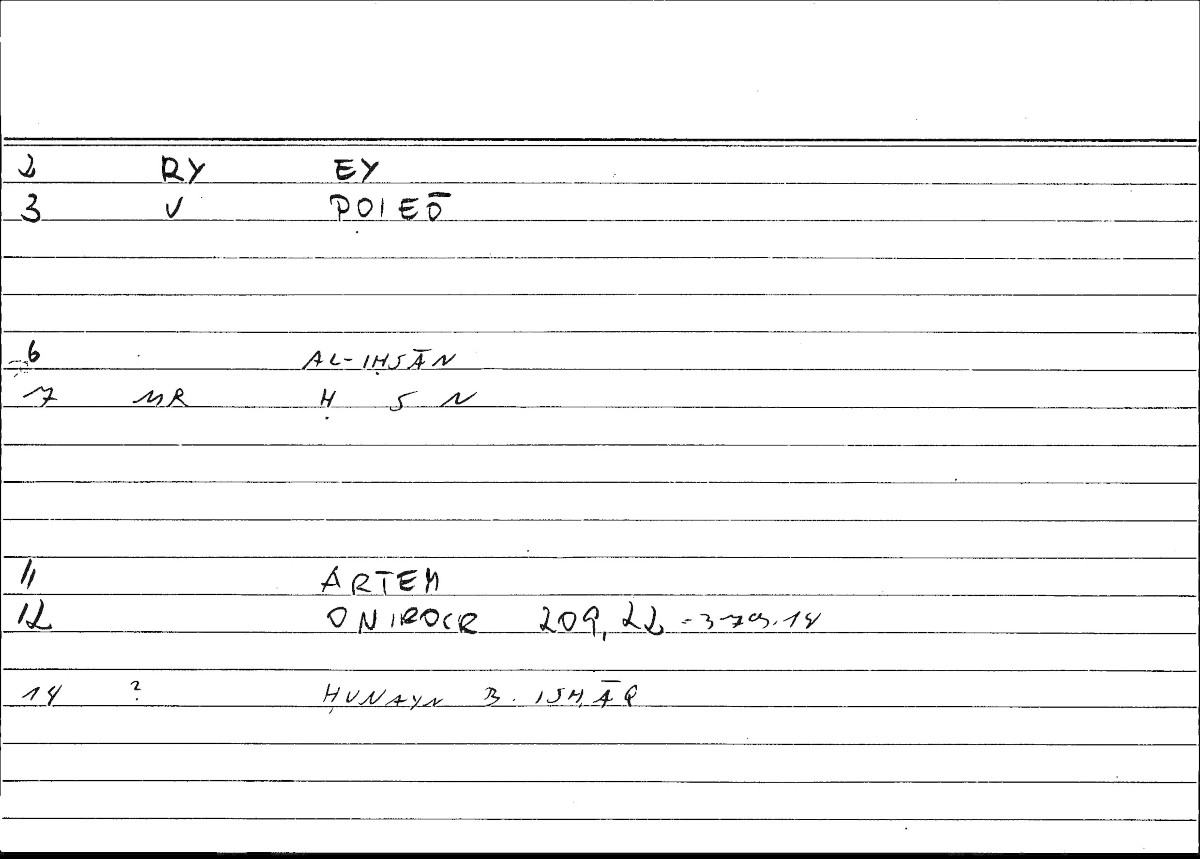 2 RY EY
3 V POIEŌ
6 AL-IḤSĀN
7 MR Ḥ S N
11 ARTEM
12 ONIROCR 209,22 - 379.14
14 ? ḤUNAYN B. ISḤĀQ